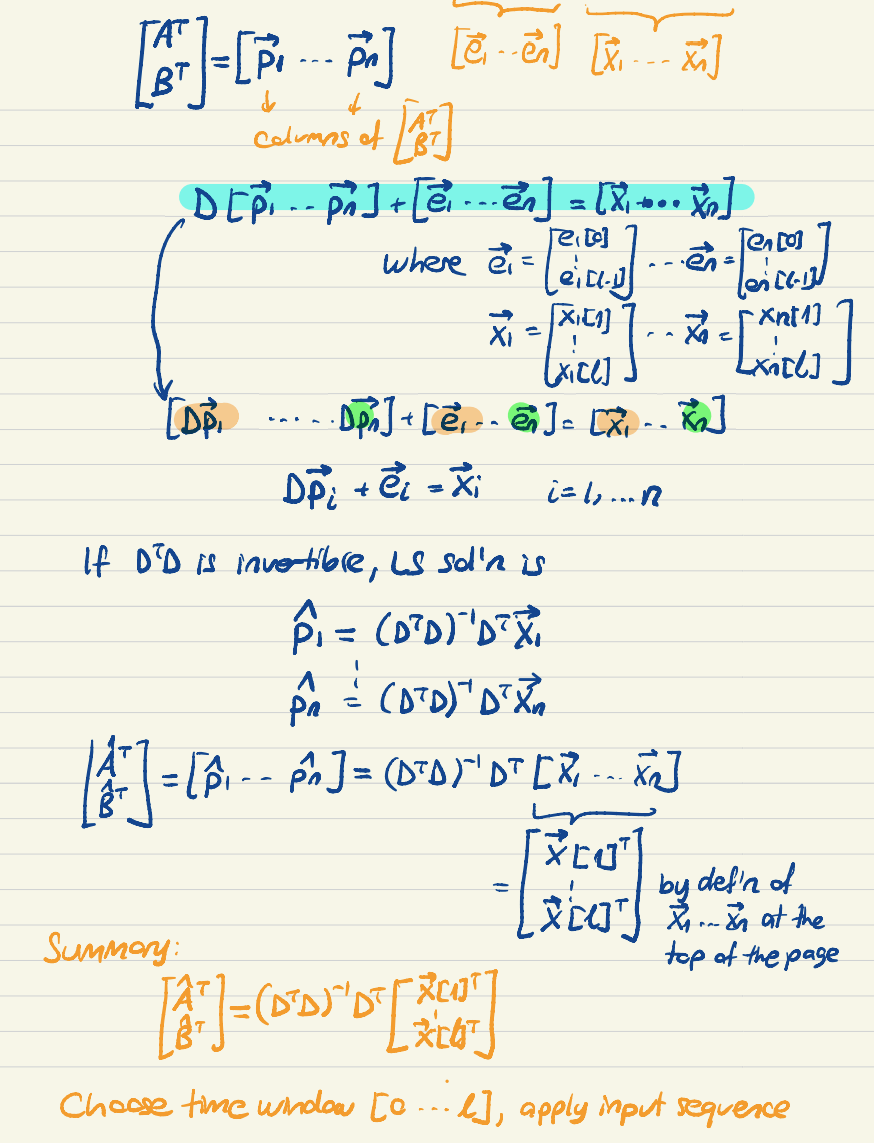 [A^T B^T] = [p⃗1 ··· p⃗n] [e⃗1 ·· e⃗n] [x⃗1 ···· x⃗n]
↓ ↓
columns of [A^T B^T]
D [p⃗1 ·· p⃗n] + [e⃗1 ··· e⃗n] = [x⃗1 ···· x⃗n]
where e⃗1 = [e1[0] ⋮ e1[l-1]] ··· e⃗n = [en[0] ⋮ en[l-1]]
x⃗1 = [x1[1] ⋮ x1[l]] ·· x⃗n = [xn[1] ⋮ xn[l]]
[Dp⃗1 ········ Dp⃗n] + [e⃗1 ·· e⃗n] = [x⃗1 ·· x⃗n]
Dp⃗i + e⃗i = x⃗i i=1,...n
If D^TD is invertible, LS sol'n is
p̂1 = (D^TD)^-1 D^T x⃗1
⋮
p̂n = (D^TD)^-1 D^T x⃗n
[Â^T B̂^T] = [p̂1 ·· p̂n] = (D^TD)^-1 D^T [x⃗1 ··· x⃗n]
= [x⃗[1]^T ⋮ x⃗[l]^T] by def'n of
x⃗1 ... x⃗n at the
top of the page
Summary:
[Â^T B̂^T] = (D^TD)^-1 D^T [x⃗[1]^T ⋮ x⃗[l]^T]
Choose time window [0 ··· l], apply input sequence